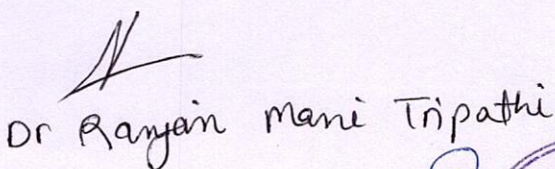 Dr Ranjan Mani Tripathi